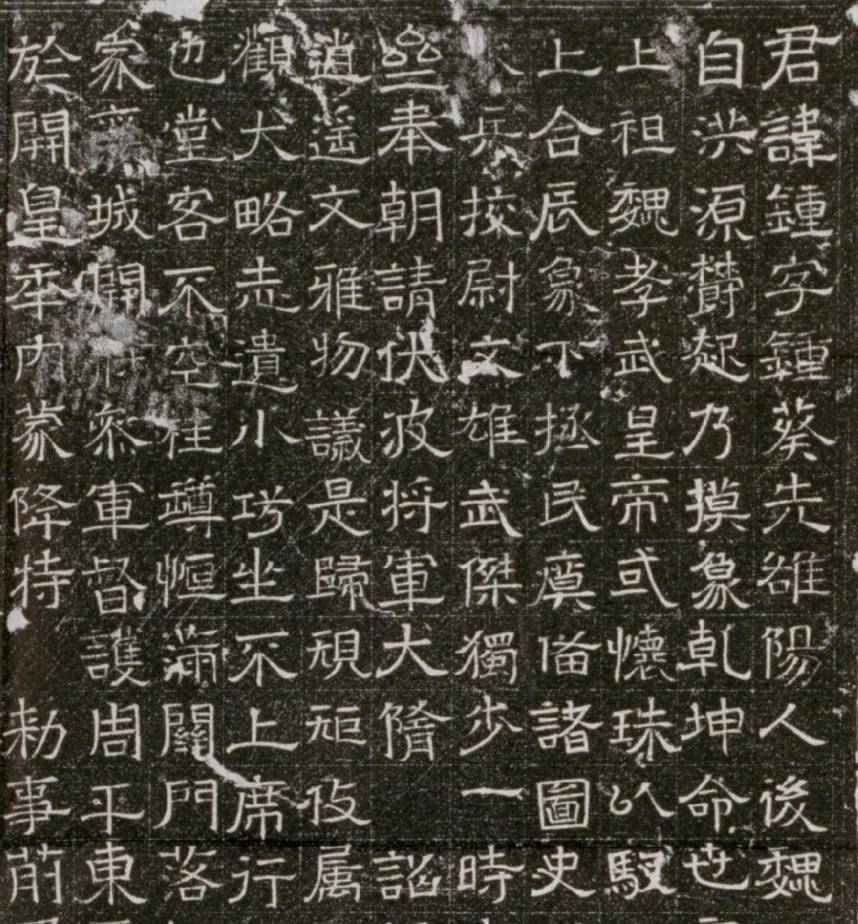 君諱鍾字鍾葵先雒陽人後魏
自洪源欝起乃摸象乾坤命世
上祖魏孝武皇帝或懷珠以馭
上合辰象下拯民瘼俻諸圖史
兵挍尉文雄武傑獨步一時
亝奉朝請伏波将軍大隋 詔
逍遥文雅物議是歸規矩攸属
觀大略志遺小巧坐不上席行
也堂客不空罇恒滿關門落
家城開参軍督護周平東
於開皇年内蒙降特 勑事前